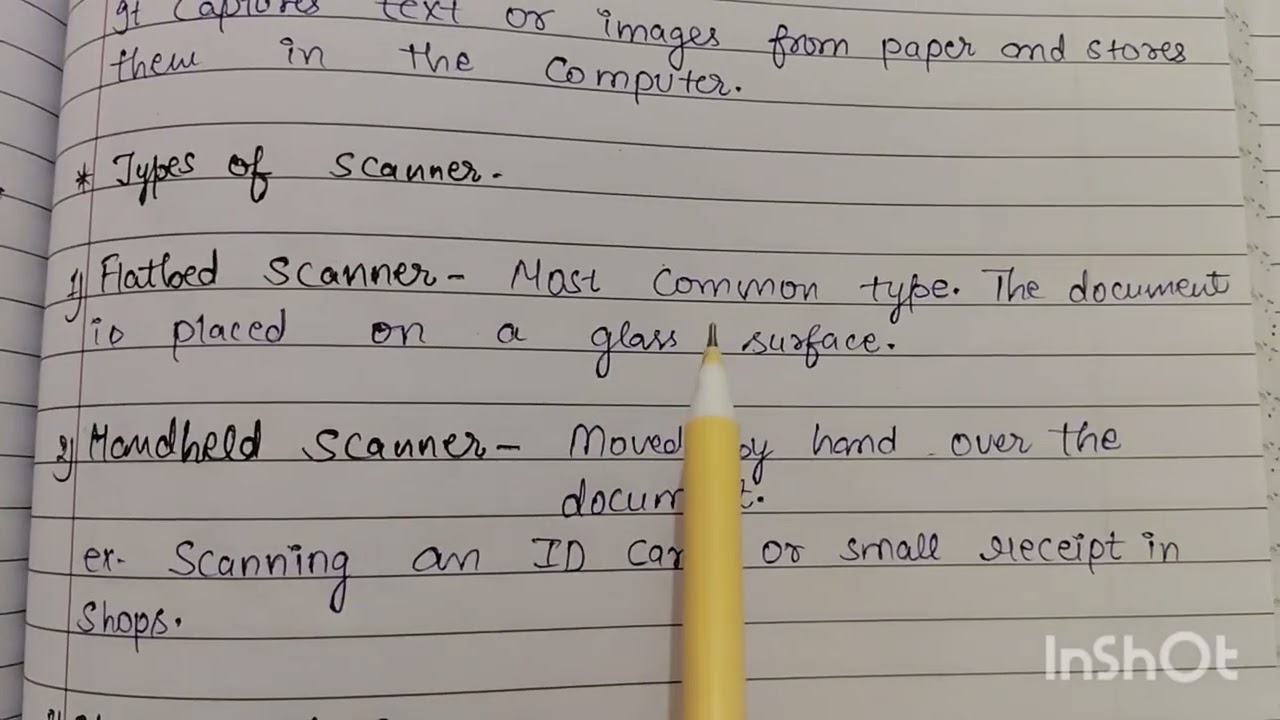 It captures text or images from paper and stores
them in the computer.
* Types of scanner.
1) Flatbed scanner - Most common type. The document
is placed on a glass surface.
2) Handheld scanner - Moved by hand over the
document.
ex. Scanning an ID Card or small receipt in
shops.
InShOt